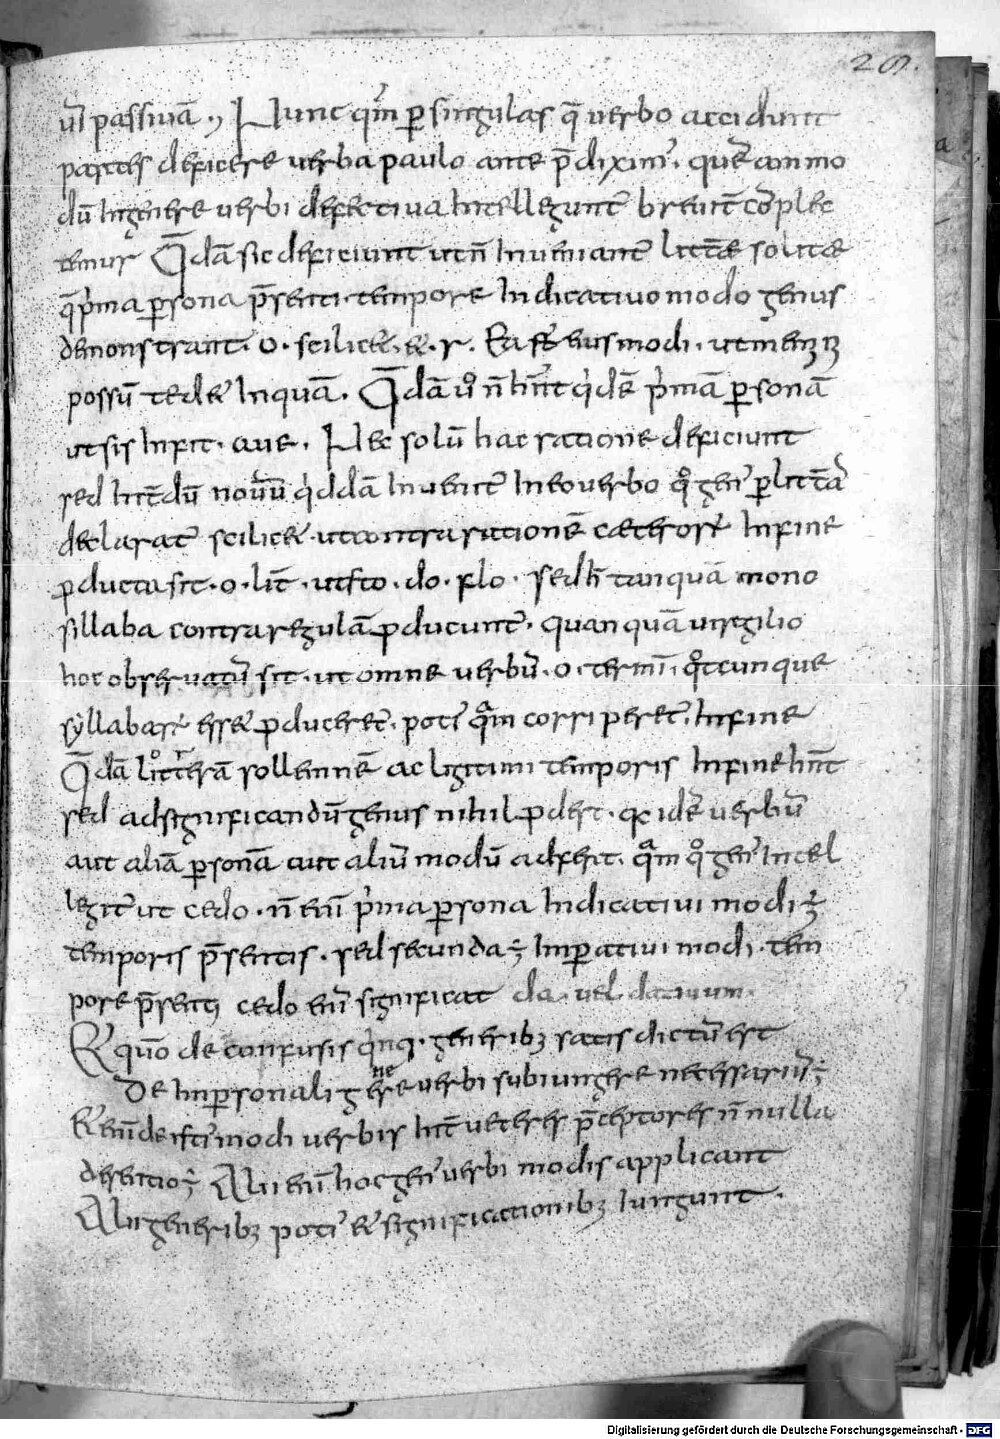 29.
ul passiuā ., Nunc qm̄ ꝑ singulas q̄ uerbo accidunt
partes deficere uerba paulo ante p̄diximꝰ. quēammo
dū ingenere uerbi defectiua intelleguntᷣ breuit̄ cōplec
temur Q̄dā sic deficiunt utn̄ inueniantᷣ litt̄ae solitae
q̄ p̄ma ꝑsona p̄senti tempore indicatiuo modo genus
demonstrant. o. scilicet et. r. Ea s̄t huiusmodi. ut
possū tedet inquā. Q̄dā uͦ n̄ hn̄t qͥdē pͥmā ꝑsonā
ut sis infit. aue. Nec solū hac ratione deficiunt
sed int̄dū qͥddā inuenitᷣ in eo uerbo qͦ genꝰ ꝑ litt̄ā
declaratᷣ scilicet ut contra rationē caeteroꝝ in fine
ꝓducta sit. o. litt̄. ut sto. do. flo. sed h̄ tanquā mono
sillaba contra regulā ꝓducuntᷣ. quanquā uirgilio
hoc obseruatū sit. ut omne uerbū. o. termi. qͦtcunque
syllabaꝝ esset ꝓduceretᷣ. potiꝰ qᷓm corriperetᷣ. in fine
Q̄dā litterā sollemnē ac ligitimi temporis in fine hn̄t
sed ad significandū genus nihil ꝓdest. qͥ idē uerbū
aut aliā ꝑsonā aut aliū modū adfert. qᷓm qͦ genꝰ intel
legitᷣ ut cedo. n̄ enī pͥma ꝑsona indicatiui modi ÷
temporis p̄sentis. sed secunda ÷ inꝑatiui modi. tem
pore p̄senti; cedo enī significat da. uel datiuum.
Et quō de confusis qͥnqꝫ. generibꝫ satis dictū est
De inꝑsonali genere uerbi subiungere necessariū ÷
Et enī de istiꝰmodi uerbis int̄ ueteres p̄ceptores n̄nulla
desentio ÷ Alii enī hoc genꝰ uerbi modis applicant
Alii generibꝫ potiꝰ et significationibꝫ iungunt.
Digitalisierung gefördert durch die Deutsche Forschungsgemeinschaft - DFG